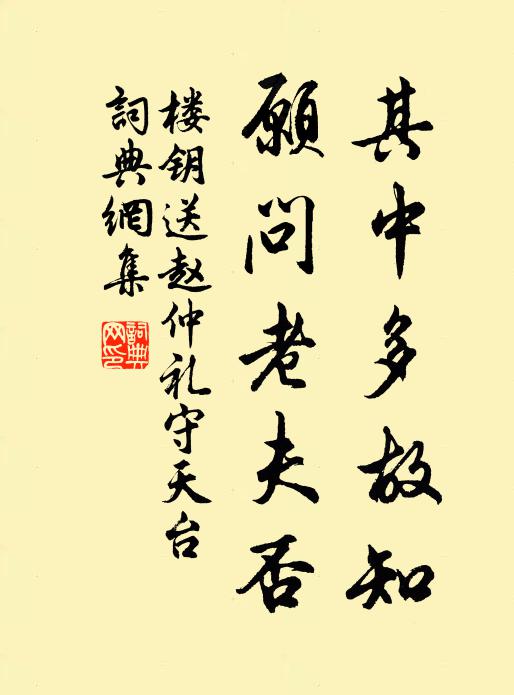 其中多故知
願問老夫否
楼钥送赵仲礼守天台
詞典網集
詞典網印